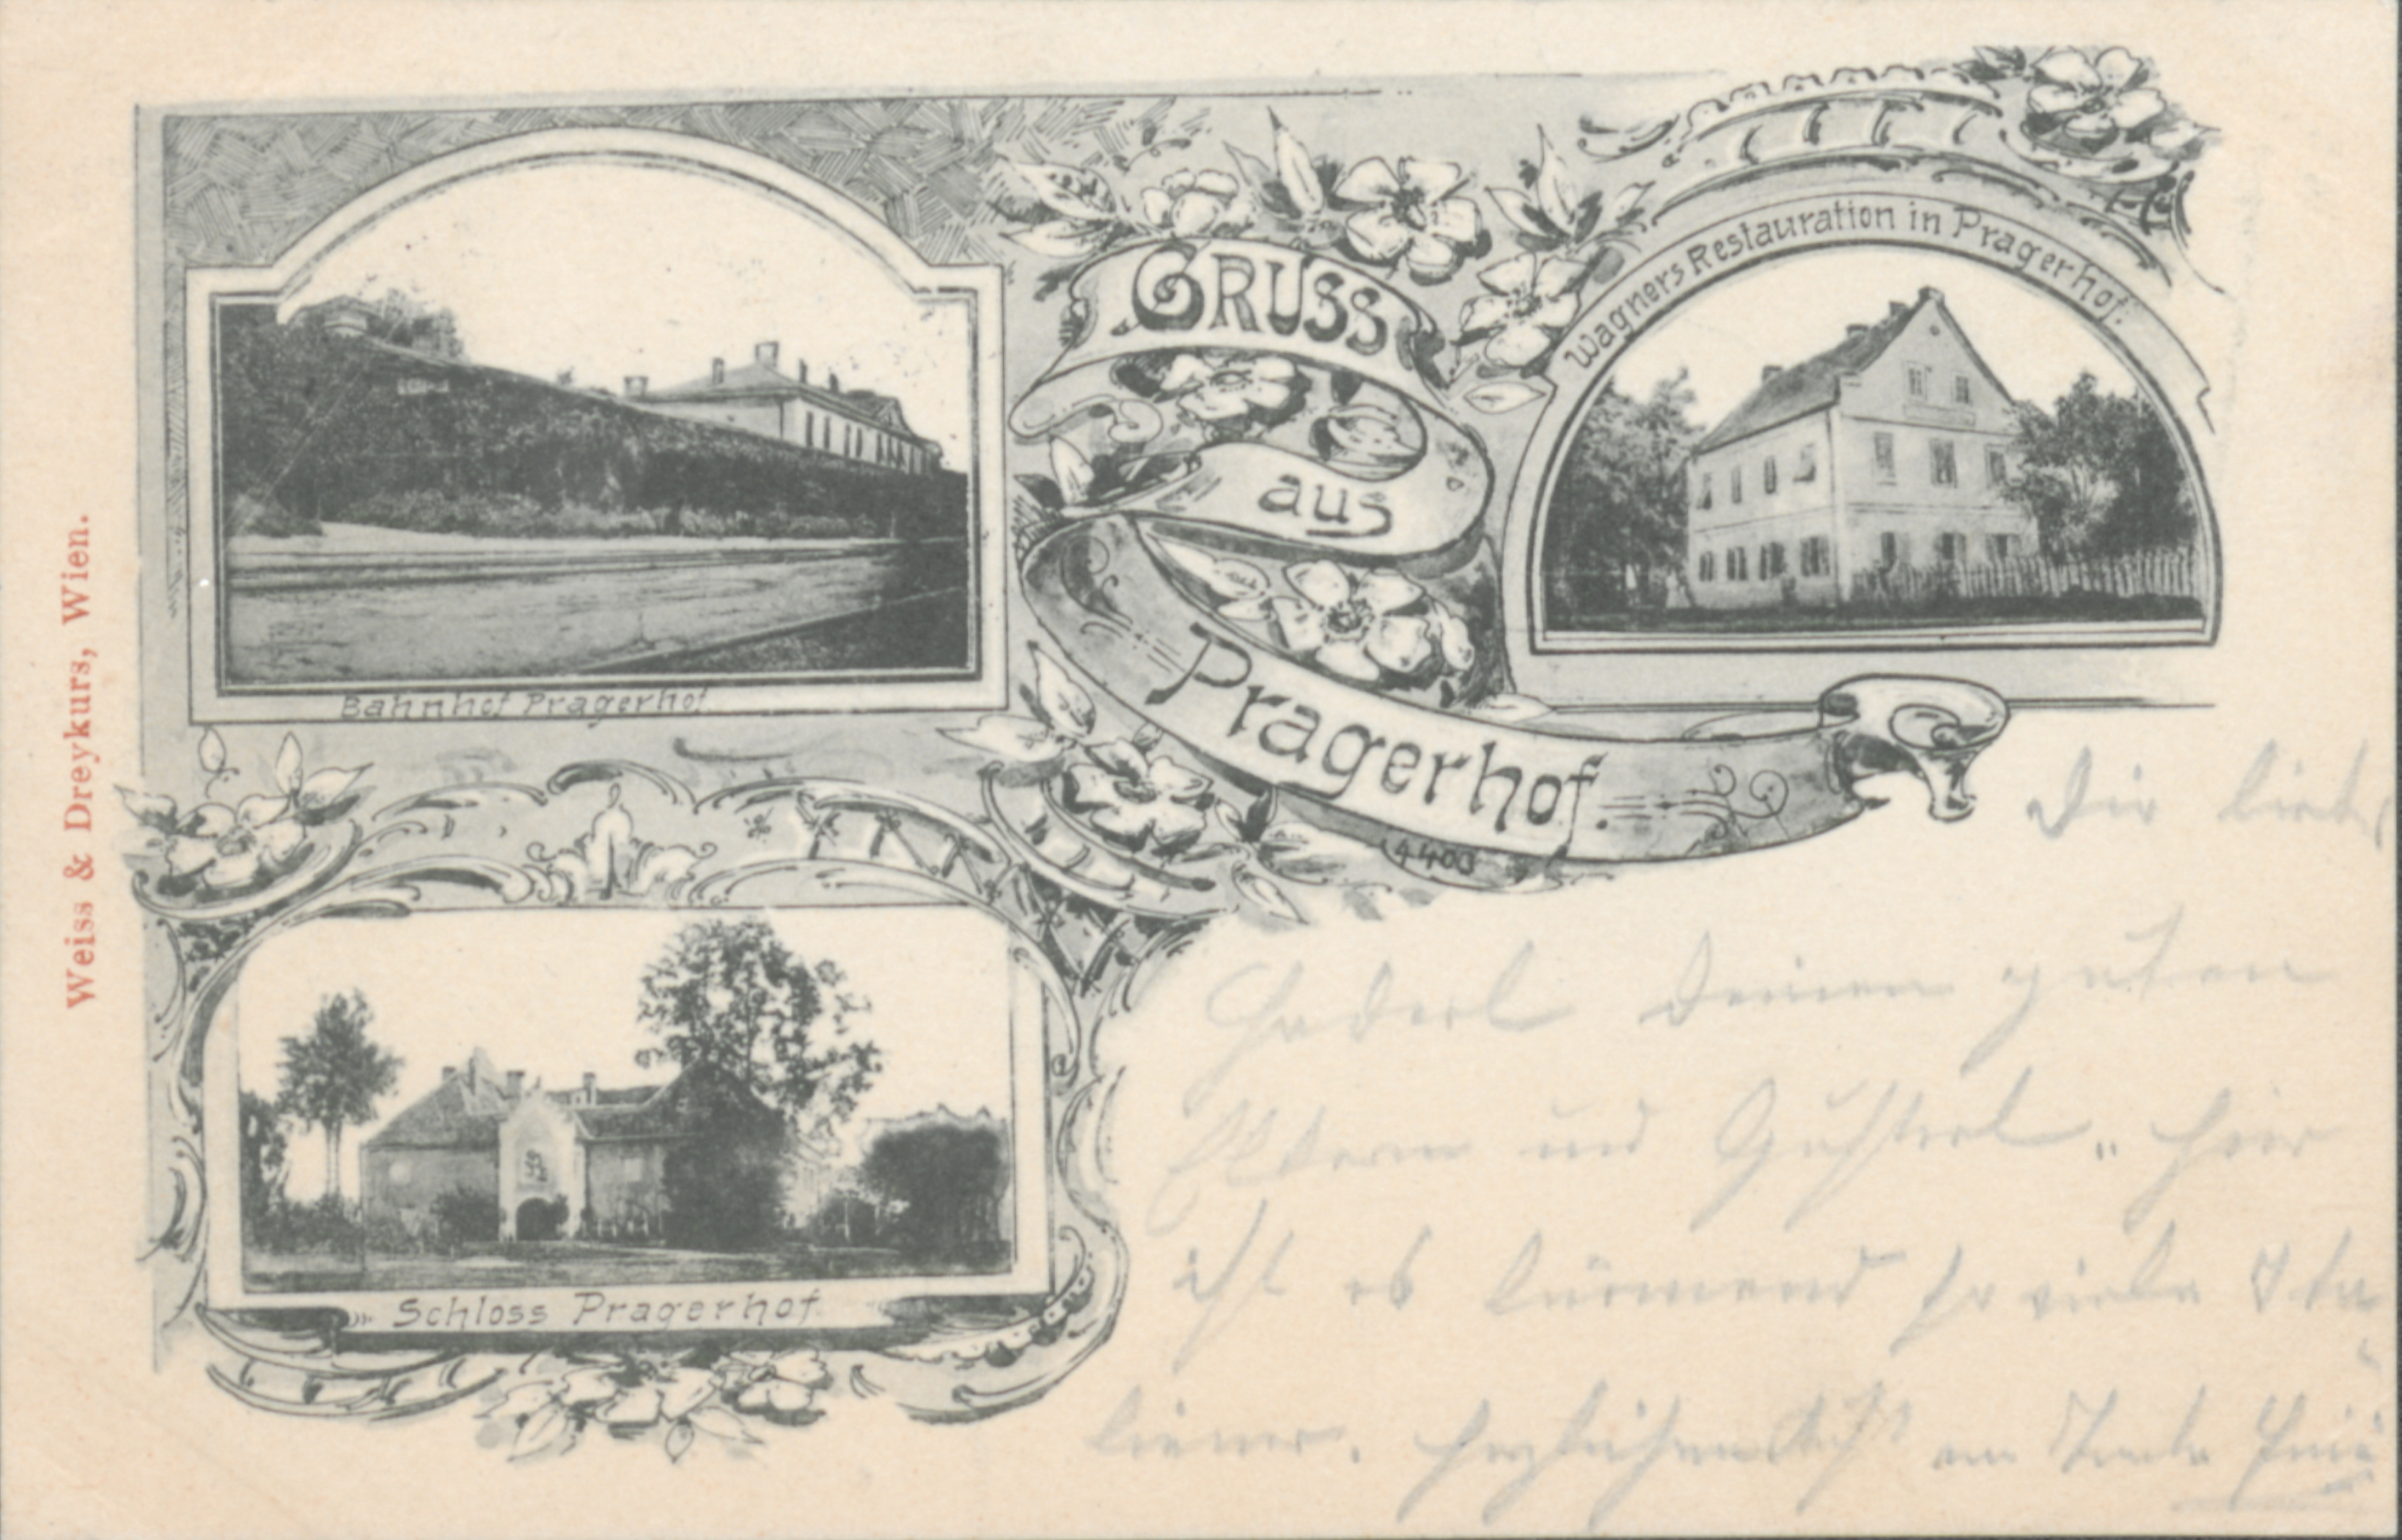 Weiss & Dreykurs, Wien.
GRUSS
aus
Pragerhof.
Wagners Restauration in Pragerhof.
Bahnhof Pragerhof
4403
Schloss Pragerhof.
Dir liebes
deinen guten
Eltern und Gusterl
ist es so viele Ita
liener. Herzlichen